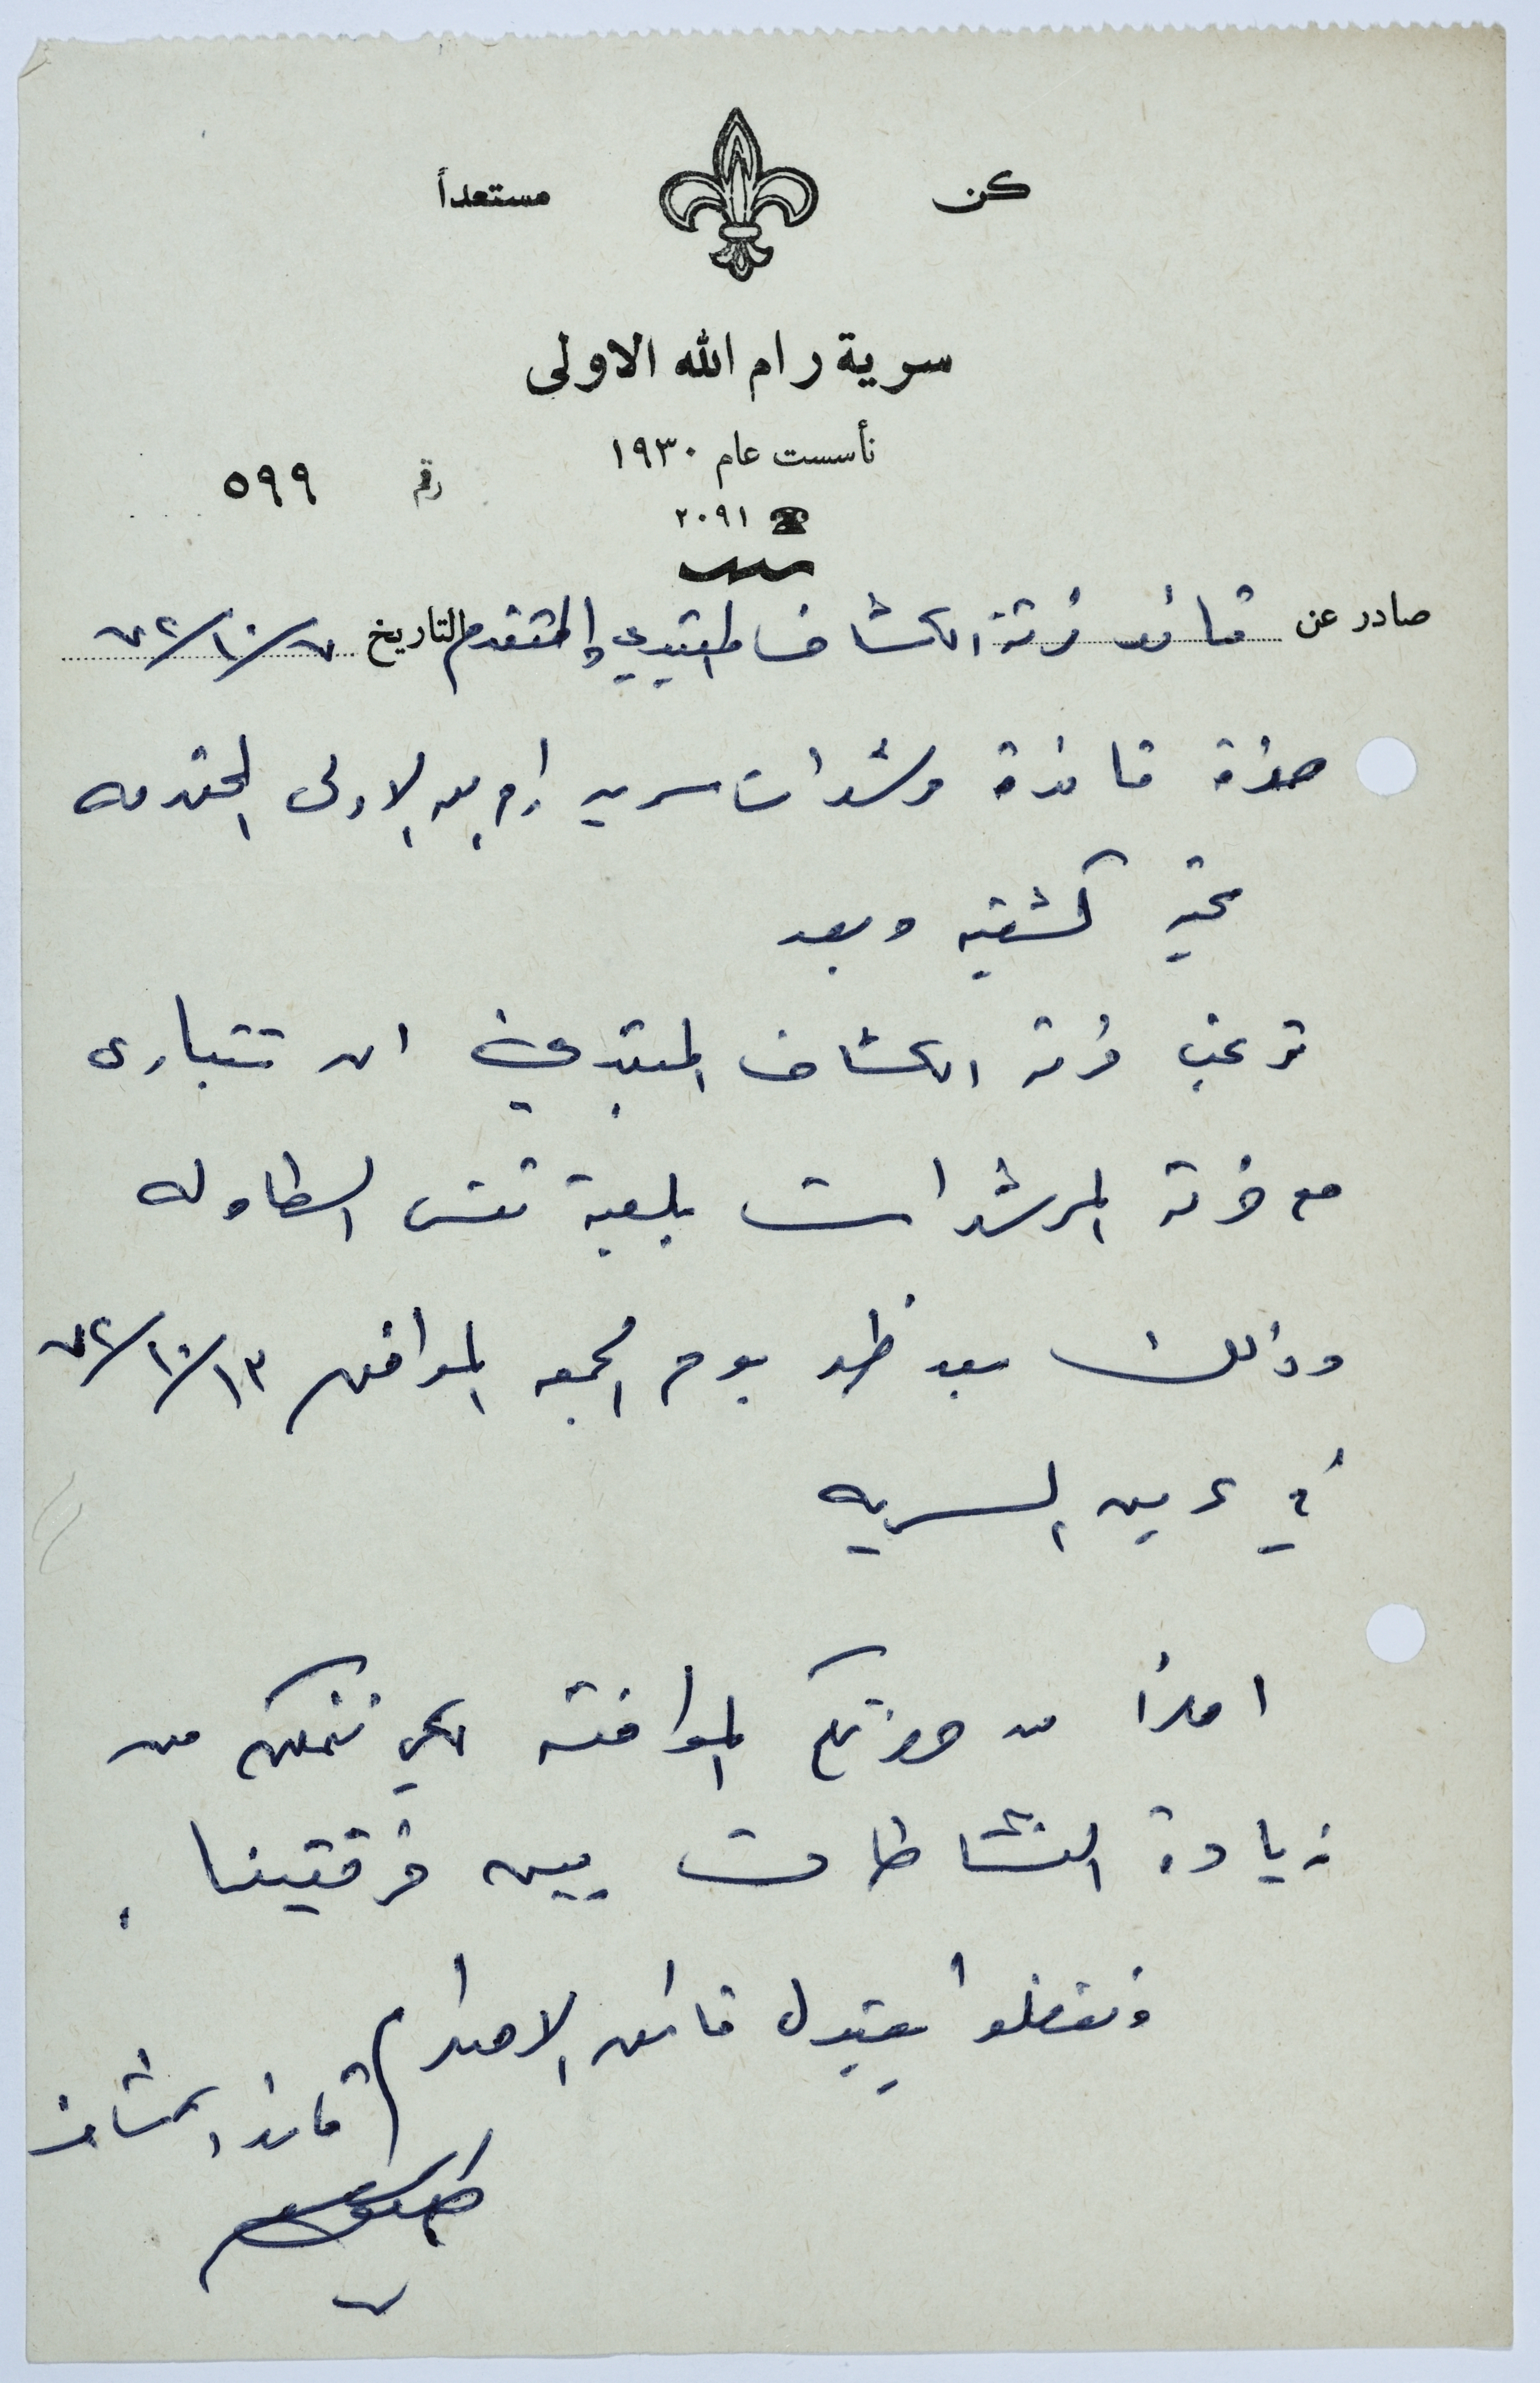 كن مستعداً
سرية رام الله الاولى
تأسست عام ١٩٣٠
رقم ٥٩٩
☎ ٢٠٩١
صادر عن قائد فرقة الكشاف المبتدئ والمتقدم التاريخ ٧٢/١٠/٧
حضرة قائدة مرشدات سريه رام الله الاولى المحترمه
تحيه كشفيه وبعد
ترغب فرقه الكشاف المبتدئ ان تتبارى
مع فرقة المرشدات بلعبة تنس الطاوله
وذلك بعد ظهر يوم الجمعه الموافق ٧٢/١٠/١٣
في عرين السريه
املاً من حضرتكم الموافقه لكي نتمكن من
زيادة النشاطات بين فرقتينا .
وتفضلوا بقبول فائق الاحترام
قائد الكشاف